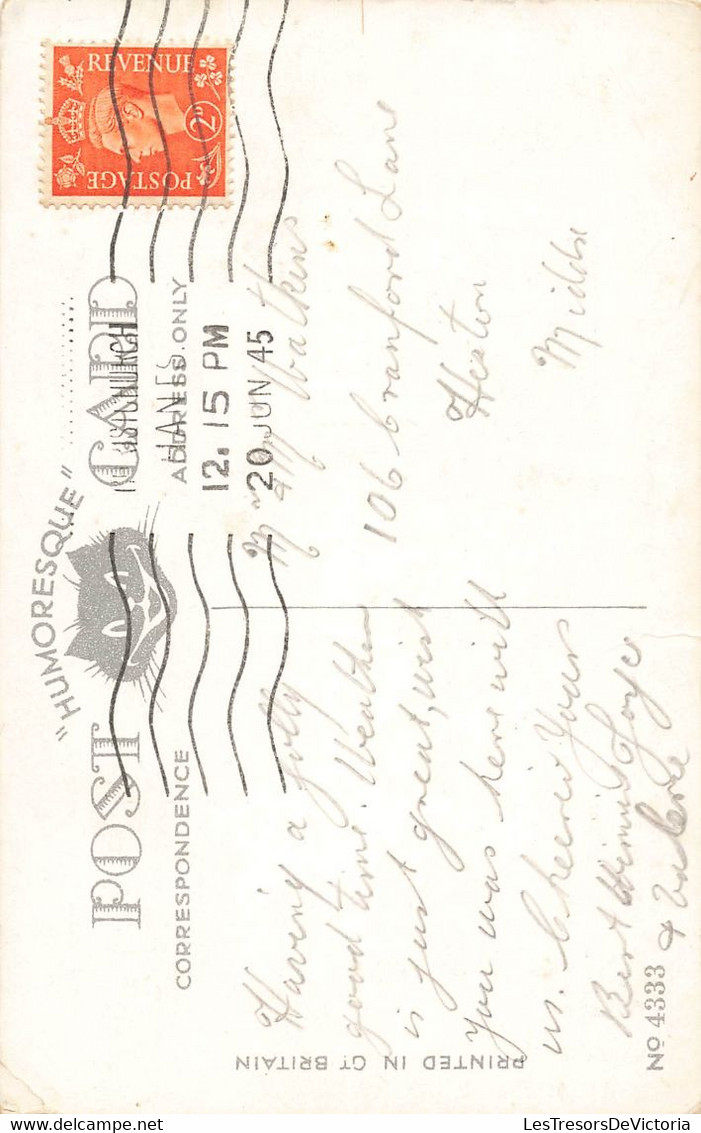 "HUMORESQUE"
POST CARD
CORRESPONDENCE
ADDRESS ONLY
REVENUE
2D
POSTAGE
HANTS
12. 15 PM
20 JUN 45
Having a jolly
good time. Weather
is just great, wish
you was here with
us. Cheerio Yours
Bert Winnie Joyce
& Valerie
Mr & Mrs Watkins
106 Cranford Lane
Heston
Middx
PRINTED IN GT BRITAIN
No 4333
LesTresorsDeVictoria